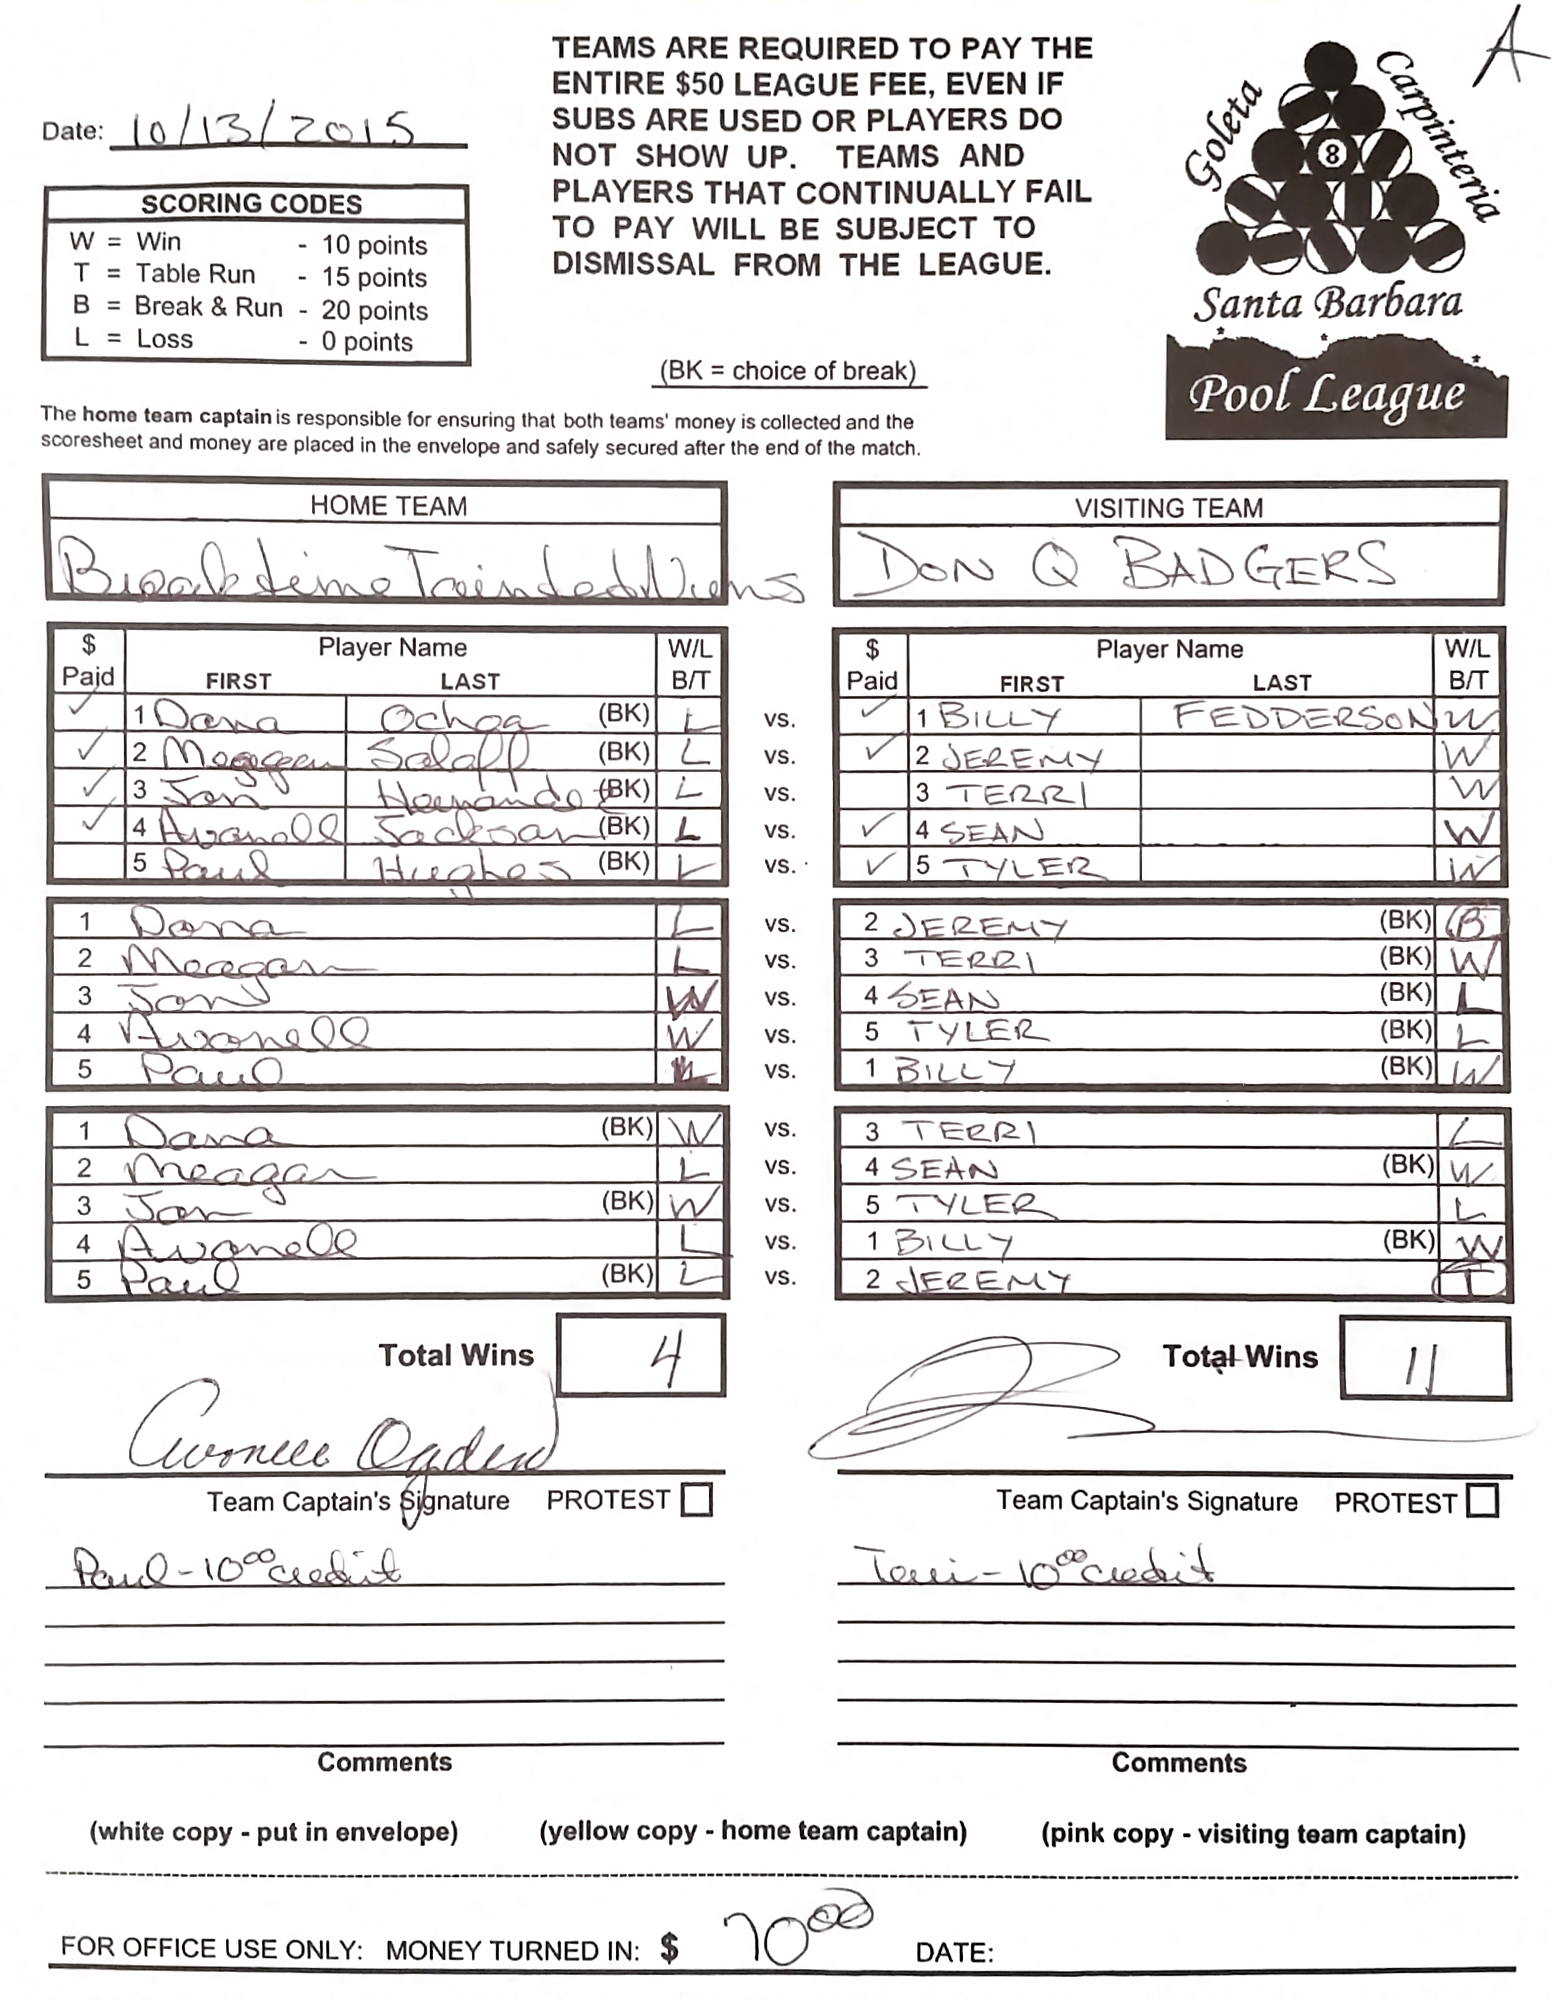 A
TEAMS ARE REQUIRED TO PAY THE
ENTIRE $50 LEAGUE FEE, EVEN IF
SUBS ARE USED OR PLAYERS DO
NOT SHOW UP. TEAMS AND
PLAYERS THAT CONTINUALLY FAIL
TO PAY WILL BE SUBJECT TO
DISMISSAL FROM THE LEAGUE.
Date: 10/13/2015
SCORING CODES
W = Win - 10 points
T = Table Run - 15 points
B = Break & Run - 20 points
L = Loss - 0 points
(BK = choice of break)
Goleta
Carpinteria
8
Santa Barbara
Pool League
The home team captain is responsible for ensuring that both teams' money is collected and the
scoresheet and money are placed in the envelope and safely secured after the end of the match.
HOME TEAM VISITING TEAM
Breaktime DON Q BADGERS
$ Paid Player Name FIRST LAST W/L B/T $ Paid Player Name FIRST LAST W/L B/T
✓ 1 Dana Ochoa (BK) L vs. ✓ 1 BILLY FEDDERSON W
✓ 2 Meagan Salaff (BK) L vs. ✓ 2 JEREMY W
✓ 3 Jon Hernandez (BK) L vs. 3 TERRI W
✓ 4 Avonell Jackson (BK) L vs. ✓ 4 SEAN W
5 Paul Hughes (BK) L vs. ✓ 5 TYLER W
1 Dana L vs. 2 JEREMY (BK) B
2 Meagan L vs. 3 TERRI (BK) W
3 Jon W vs. 4 SEAN (BK) L
4 Avonell W vs. 5 TYLER (BK) L
5 Paul L vs. 1 BILLY (BK) W
1 Dana (BK) W vs. 3 TERRI L
2 Meagan L vs. 4 SEAN (BK) W
3 Jon (BK) W vs. 5 TYLER L
4 Avonell L vs. 1 BILLY (BK) W
5 Paul (BK) L vs. 2 JEREMY T
Total Wins 4 Total Wins 11
Avonell Ogden
Team Captain's Signature PROTEST Team Captain's Signature PROTEST
Paul - 10⁰⁰ credit Terri - 10⁰⁰ credit
Comments Comments
(white copy - put in envelope) (yellow copy - home team captain) (pink copy - visiting team captain)
FOR OFFICE USE ONLY: MONEY TURNED IN: $ 70⁰⁰ DATE: